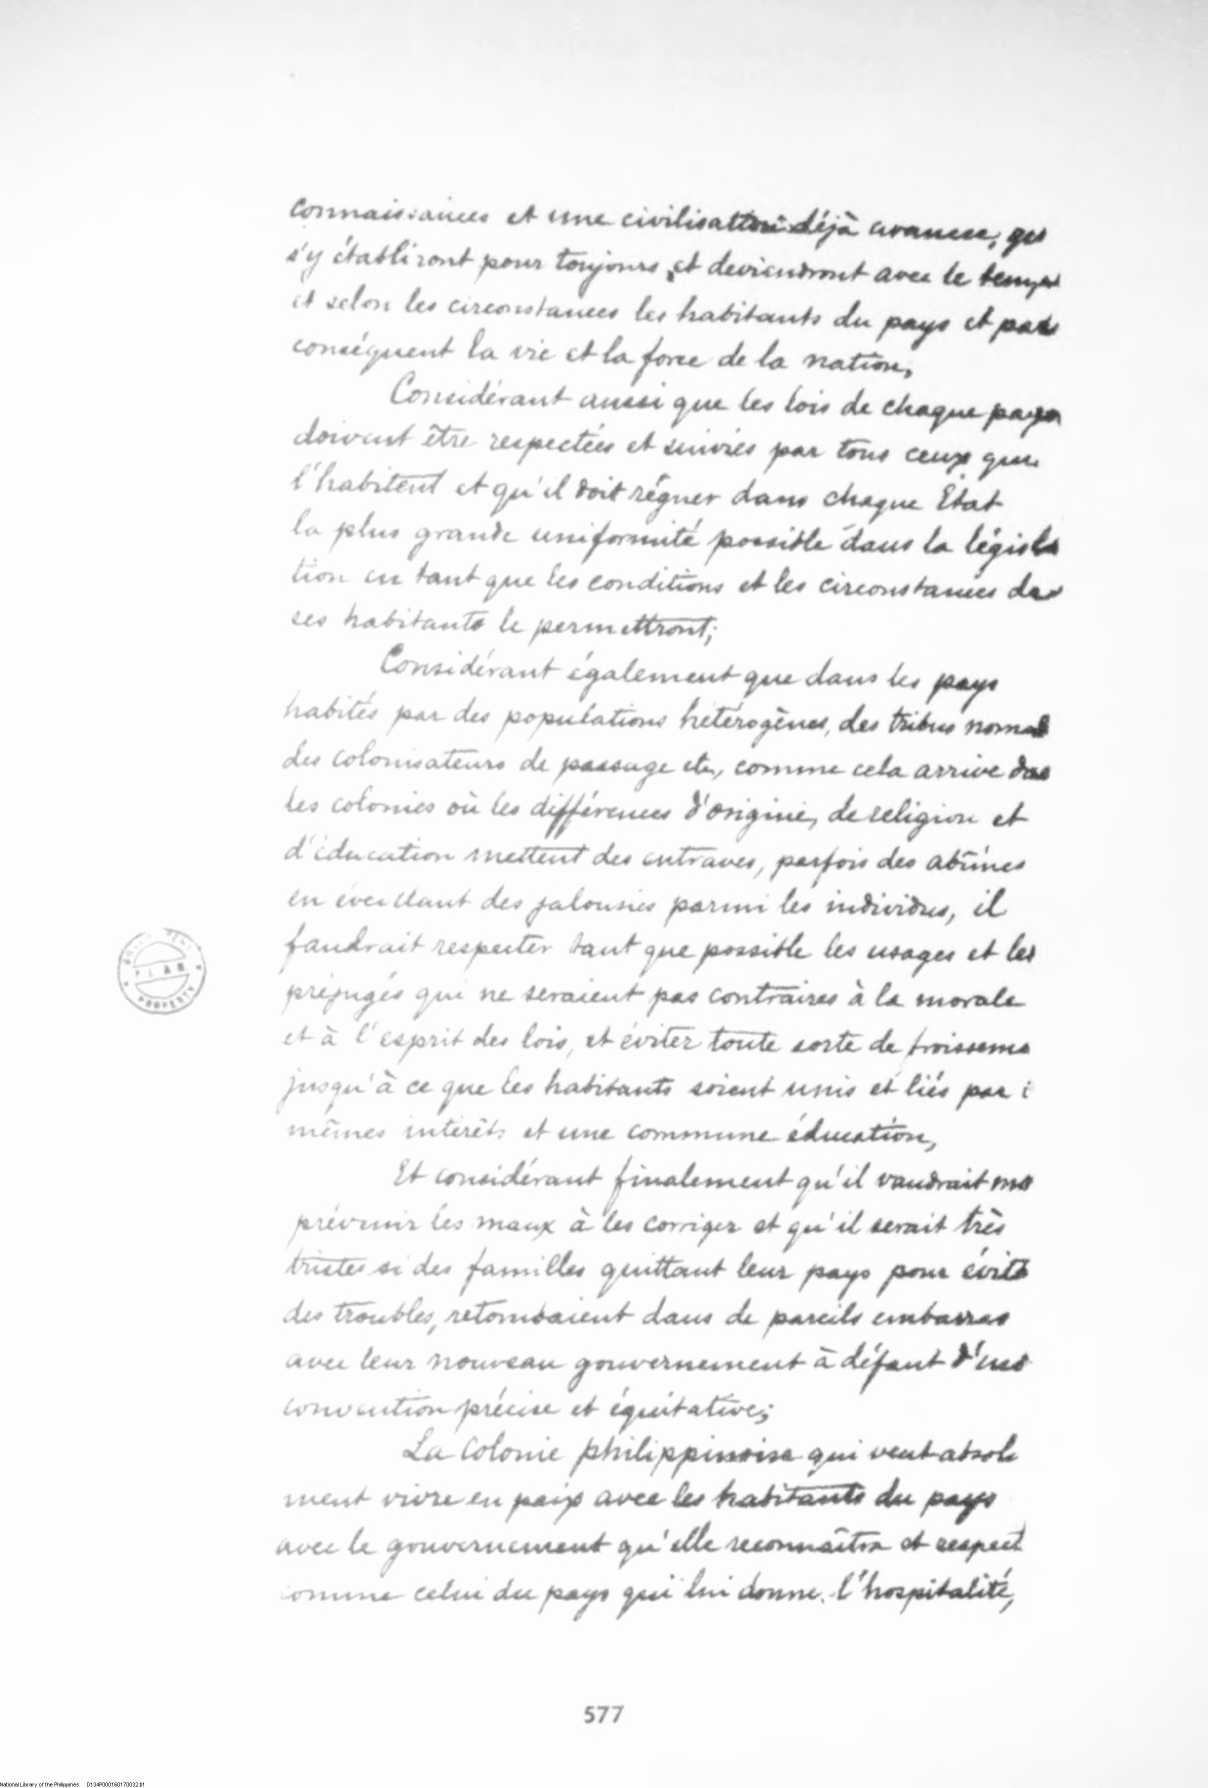 connaissances et une civilisation déjà avancée, qui
s'y établiront pour toujours, et deviendront avec le temps
et selon les circonstances les habitants du pays et par
conséquent la vie et la force de la nation,
Considérant aussi que les lois de chaque pays
doivent être respectées et suivies par tous ceux qui
l'habitent et qu'il doit régner dans chaque État
la plus grande uniformité possible dans la législa
tion en tant que les conditions et les circonstances de
ses habitants le permettront;
Considérant également que dans les pays
habités par des populations hétérogènes, des tribus nomad
des colonisateurs de passage etc, comme cela arrive dans
les colonies où les différences d'origine, de religion et
d'éducation mettent des entraves, parfois des abîmes
en éveillant des jalousies parmi les individus, il
faudrait respecter tant que possible les usages et les
préjugés qui ne seraient pas contraires à la morale
et à l'esprit des lois, et éviter toute sorte de froisseme
jusqu'à ce que les habitants soient unis et liés par
mêmes intérêts et une commune éducation,
Et considérant finalement qu'il vaudrait
prévenir les maux à les corriger et qu'il serait très
tristes si des familles quittant leur pays pour évite
des troubles, retombaient dans de pareils embarras
avec leur nouveau gouvernement à défaut d'une
convention précise et équitative;
La Colonie philippinoise qui veut absolu
ment vivre en paix avec les habitants du pays
avec le gouvernement qu'elle reconnaîtra et respect
comme celui du pays qui lui donne l'hospitalité,
PROPERTY
577
National Library of the Philippines